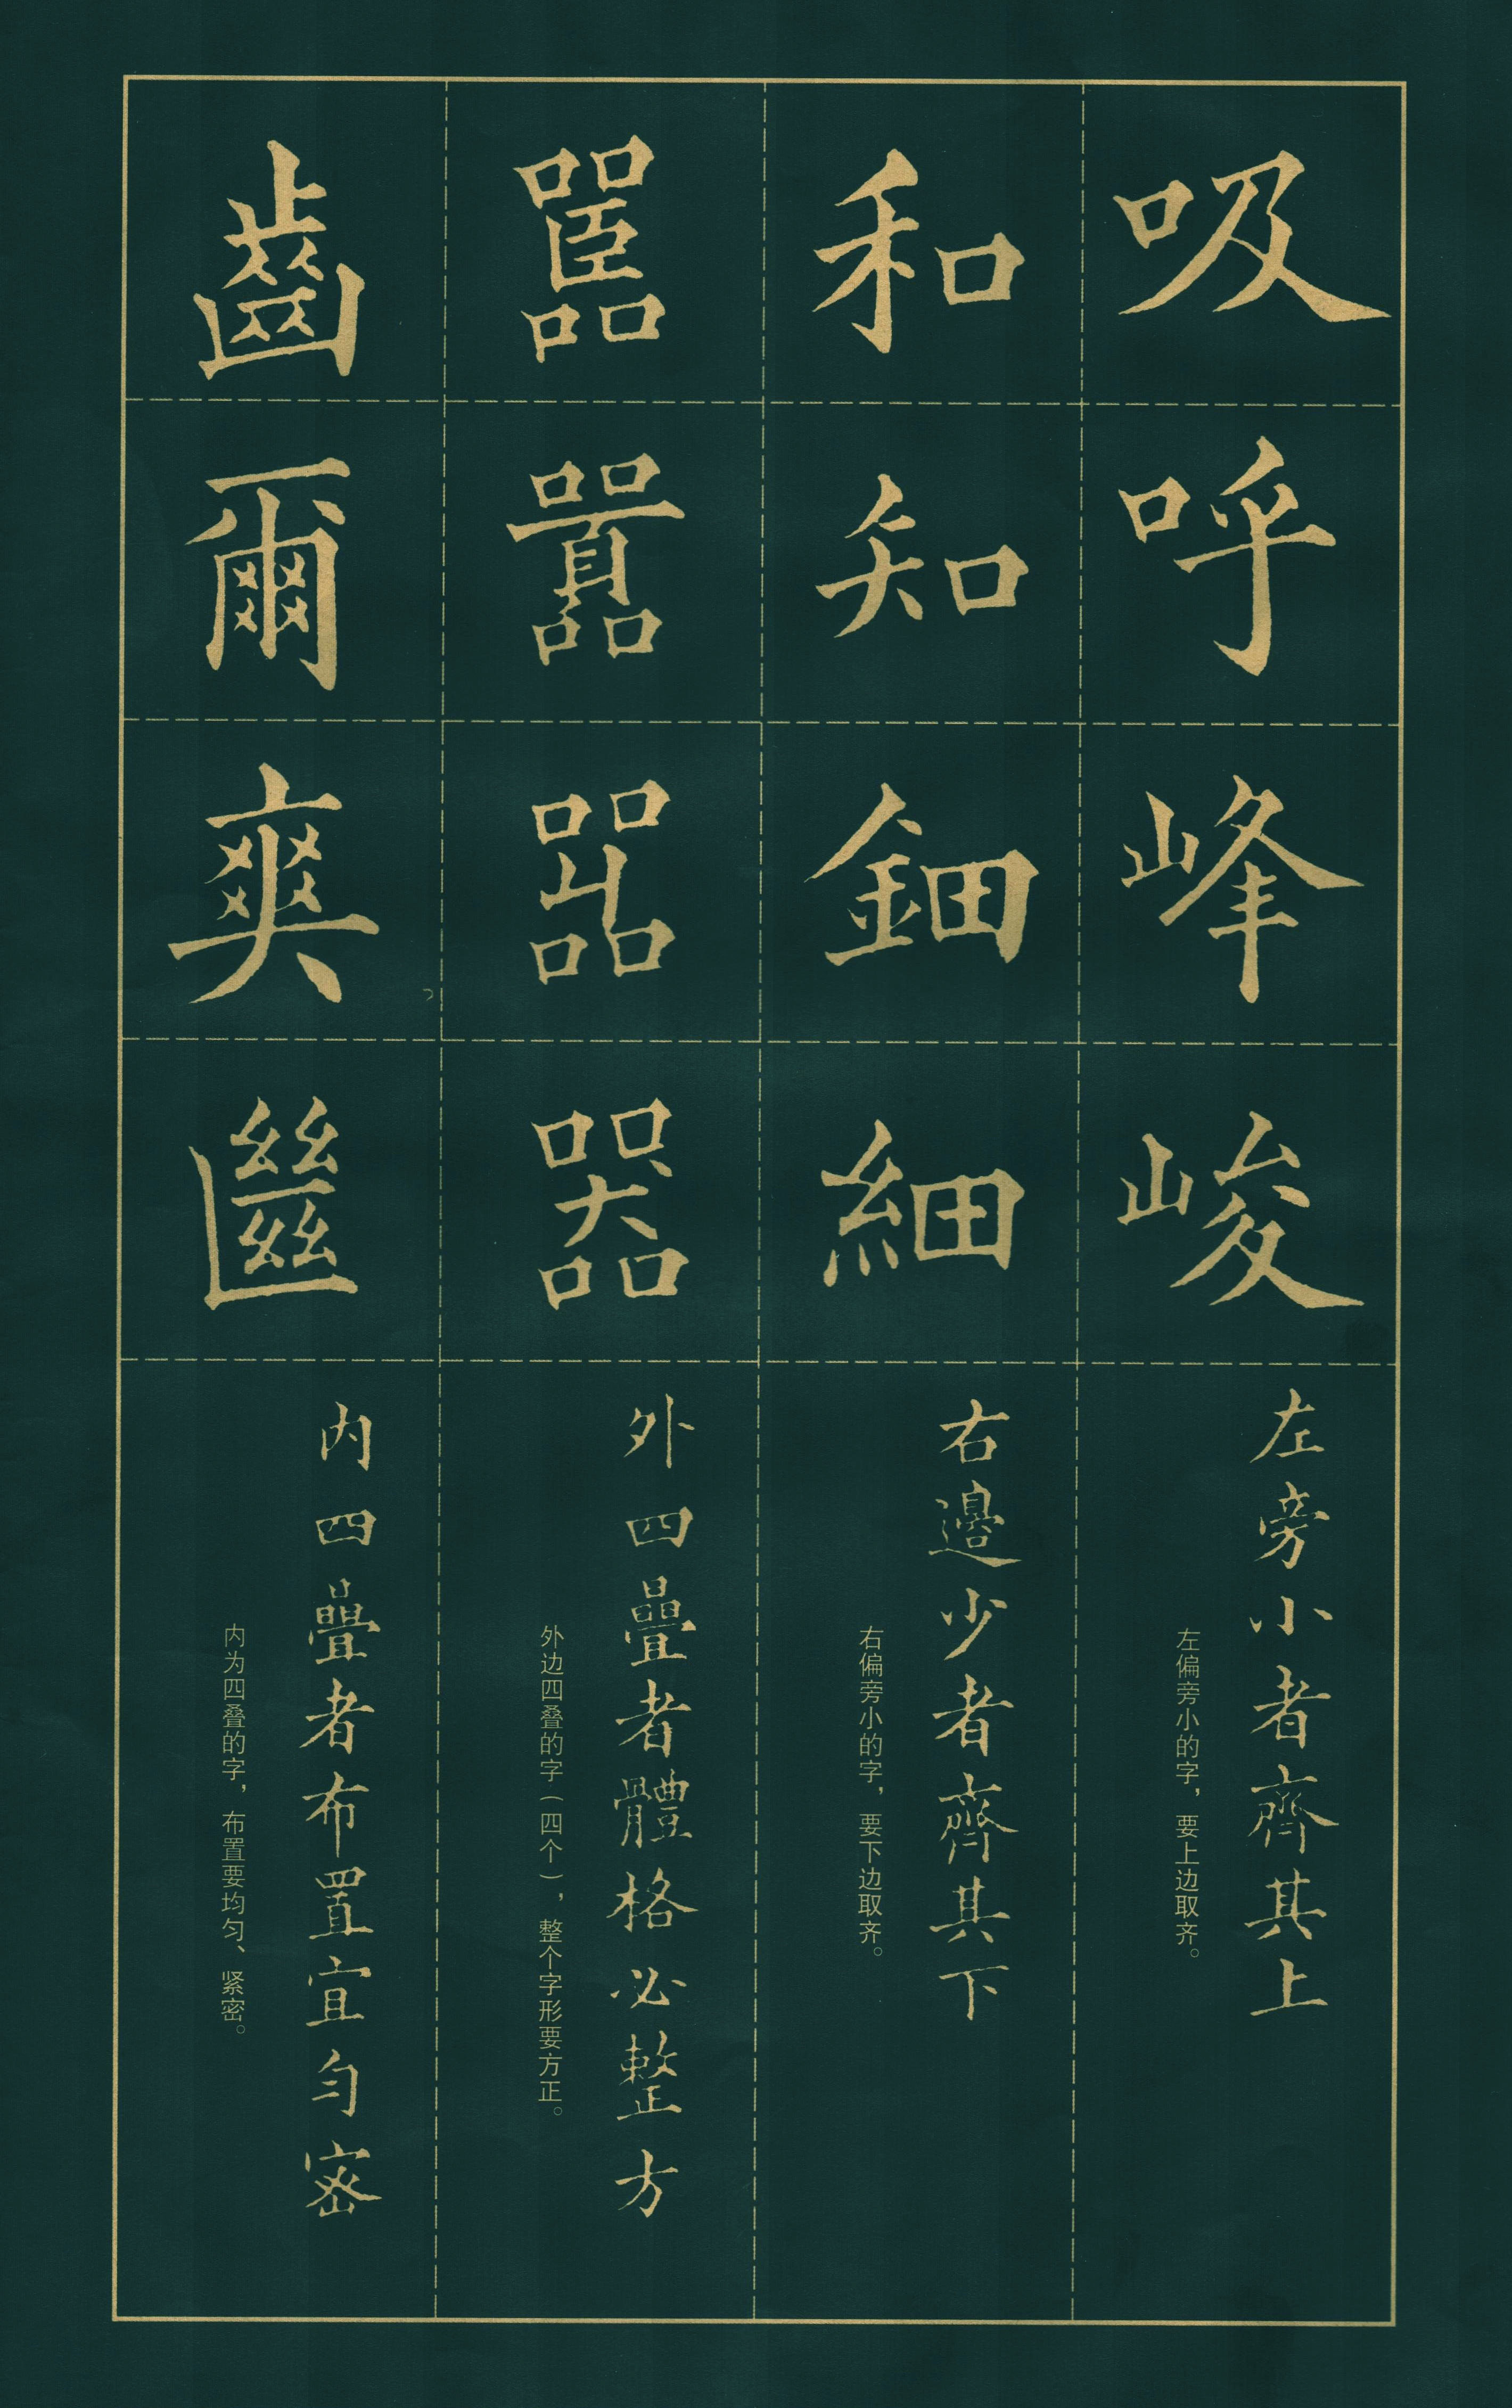 吸呼峰峻
左旁小者齊其上
左偏旁小的字，要上边取齐。
和知鈿細
右邊少者齊其下
右偏旁小的字，要下边取齐。
嚚囂嘂器
外四疊者體格必整方
外边四叠的字（四个），整个字形要方正。
齒爾爽㡭
内四疊者布置宜匀密
内为四叠的字，布置要均匀、紧密。